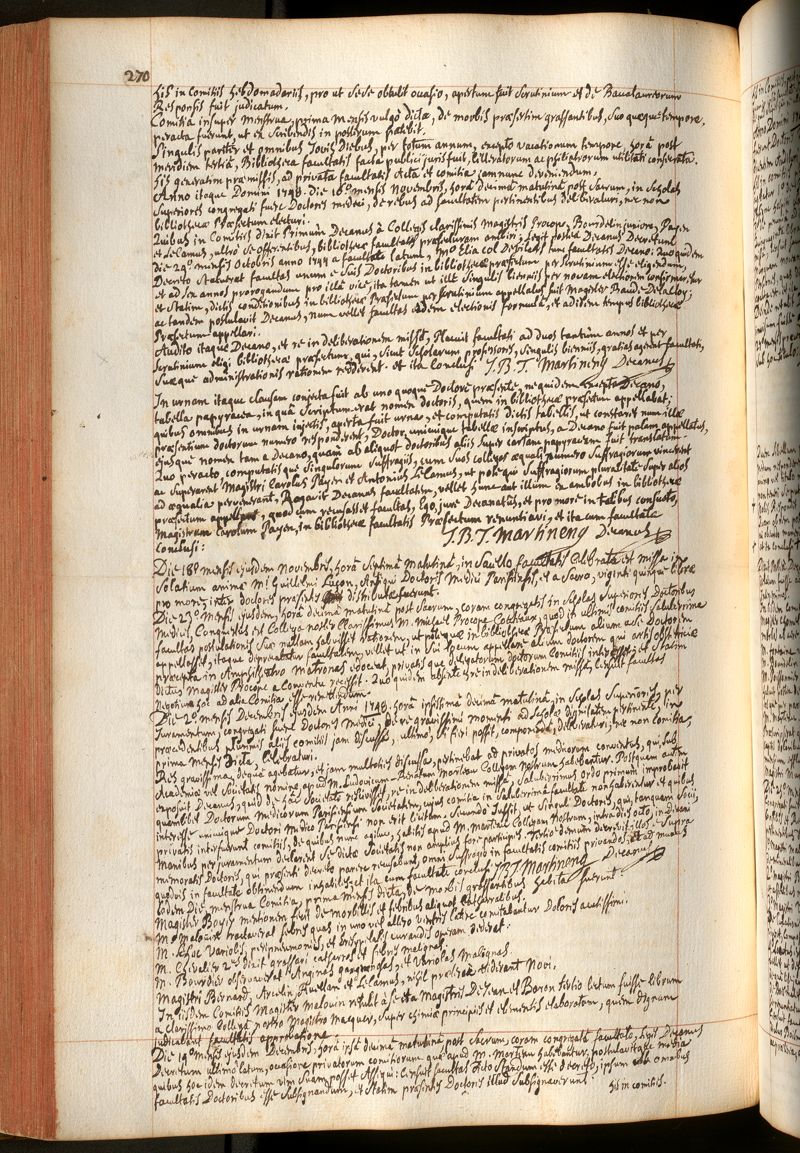 270
his in Comitiis hebdomadariis, pro ut sese obtulit occasio, apertum fuit Scrutinium et de Baccalaureorum
Responsis fuit judicatum.
Comitia insuper menstrua, prima mensis vulgò dicta, de morbis præsertim grassantibus, suo quæque tempore,
peracta fuerunt, ut ex scribendis in posterum patebit.
Singulis pariter et omnibus Jovis Diebus, per totum annum, excepto vacationum tempore, horâ post
meridiem tertiâ, Bibliotheca facultatis facta publici juris fuit, litteratorum ac philiatrorum utilitati consecrata.
his generatim præmissis, ad privata facultatis Acta et comitia jam nunc deveniendum.
Anno itaque Domini 1748. die 16.º mensis Novembris, horâ decimâ matutinâ post Sacrum, in Scholis
Superioribus congregati fuere Doctores medici, de rebus ad facultatem pertinentibus deliberaturi, nec non
bibliothecæ Præfectum electuri.
Quibus in Comitiis dixit Primum Decanus à Collegis clarissimis magistris Procope, Bourdelin juniore, Payen
et LeCamus, ultrò se offerentibus, bibliothecæ facultatis præfecturam ambiri; legit postea Decanus Decretum
die 24.º mensis Octobris anno 1744 a facultate latum, M.º Elia col Devilars tum facultatis Decano: quo quidem
Decreto statuerat facultas unum e suis Doctoribus in bibliothecæ præfectum per scrutinium esse eligendum,
et ad sex annos prorogandum pro illâ vice, ita tamen ut ille singulis bienniis per novam electionem confirmaretur
et statim, dictis conditionibus in bibliothecæ Præfectum per scrutinium appellatus fuit Magister Baude Delacloy;
ac tandem postulavit Decanus, num vellet facultas eâdem electionis formulâ, et ad idem tempus bibliothecæ
Præfectum appellari.
Audito itaque Decano, et re in deliberationem missâ, Placuit facultati ad duos tantùm annos et per
Scrutinium eligi bibliothecæ præfectum, qui, sicut scholarum professores, singulis bienniis, gratias agerent facultati,
suæque administrationis rationem redderent. et ita conclusi J. B. T. Martinenq Decanus
In urnam itaque clausam conjecta fuit ab uno quoque Doctore præsente, ne quidem excepto Decano,
tabella papyracea, in quâ scriptum erat nomen doctoris, quem in bibliothecæ præfectum appellabat;
quibus omnibus in urnam injectis, aperta fuit urna, et computatis dictis tabellis, ut constaret num illæ
præsentium doctorum numero responderent, Doctor, unicuique tabellæ inscriptus, a Decano fuit palam appellatus,
ejusque nomen tam a Decano, quam ab aliquot doctoribus aliis super certam papyraceam fuit translatum.
Quo peracto, computatisque singulorum suffragiis, cum suos collegas æquali numero suffragiorum vincerent
ac superarent Magistri Carolus Payen et Antonius LeCamus, ut pote qui suffragiorum pluralitate super alios
ad æqualia pervenerant, Rogavit Decanus facultatem, vellet hunc aut illum ex ambobus in bibliothecæ
præfectum appellari, quod cum recusasset facultas, Ego, jure Decanatûs, et pro more in talibus consueto,
Magistrum Carolum Payen, in bibliothecæ facultatis Præfectum renuntiavi, et ita cum facultate
conclusi: J. B. T. Martinenq Decanus
Die 18.º mensis ejusdem Novembris, horâ septimâ matutinâ, in Sacello facultatis celebrata est missa in
solatium animæ Mi Guillelmi Leçon, Antiqui Doctoris Medici Parisiensis, et a Sacro, viginti quinque libræ
pro more, inter doctores præsentes distributæ fuerunt.
Die 23.º mensis ejusdem, horâ decimâ matutinâ post Sacrum, coram congregatis in Scholis Superioribus Doctoribus
Medicis, Conquestus est Collega noster clarissimus M. Michael Procope Couteaux, quod in ultimis comitiis saluberrima
facultas postulationis suæ nullam habuisset rationem, ut pote quæ in bibliothecæ Præfectum alium a se Doctorem
appellasset, itaque deprecatur facultatem, vellet ut in sui locum appellari alium doctorem qui artis obstetriciæ
præcepta in Amphitheatro matronas edoceat, privatisque delegatorum doctorum comitiis intersit; et statim
dictus Magister Procope a Conventu recessit. Quo quidem absente et re in deliberationem missâ, censuit facultas
negotium hoc ad alia Comitia esse remittendum.
Die 2.º mensis Decembris ejusdem Anni 1748. horâ ipsissimâ decimâ matutinâ, in Scholis Superioribus, per
juramentum, congregati fuere Doctores Medici, de re gravissimi momenti ad Scholæ dignitatem pertinente, in
præcedentibus plurimis aliis comitiis jam discussâ, ultimò, si fieri possit, componendâ, deliberaturi; nec non comitia,
prima mensis dicta, celebraturi.
Res gravissima, de quâ agebatur, et jam multoties discussa, pertinebat ad privatos medicorum conventus, qui, sub
Academiæ vel Societatis nomine, apud M. Ludovicum-Renatum Marteau Collegam nostrum habebantur. Postquam autem
exposuit Decanus, quid de hâc Societate rescivisset, re in deliberationem missâ, Saluberrimus ordo primum improbavit
quamlibet Doctorum Medicorum Parisiensium Societatem, cujus comitia in Saluberrimâ facultate non haberentur et quibus
interesse unicuique Doctori Medico Parisiensi non erit licitum. Secundò jussit, ut singuli Doctores, qui, tanquam Socii,
privatis interfuerunt comitiis, de quibus nunc agitur, habitis apud M. Marteau Collegam Nostrum, intra dies octo, in Decani
manibus per juramentum declarent se dictæ Societatis non amplius fore participes. Tertiò demùm decrevit illos e supra
memoratis Doctoribus, qui præsenti decreto parere recusabunt, omni suffragio in facultatis comitiis privandos, et ad munus
quodvis in facultate obtinendum inhabiles; et ita cum facultate conclusi J. B. T. Martinenq Decanus
Eodem Die, menstrua Comitia, prima mensis dicta, de morbis grassantibus habita fuerunt.
Magister Boyer mentionem fecit de morbillis et febribus aliquot catharralibus.
M. Malouin tradaverat febres quas in uno vel altero ventris latere comitabantur dolores acutissimi.
M. Lehoc Variolis, peripneumoniis, et erysipelati curandis operam dederat.
M. Chevalier 2.us dixit grassari catharros et febres malignas.
M. Bourdier observaverat Anginas gangrenosas, et Variolas Malignas.
Magistri Bernard, Arcelin, Avellan et LeCamus, nihil prælecta ediderant novi.
In iisdem Comitiis Magister Malouin retulit à se et a Magistris De Jean et Baron tertio lectum fuisse librum
a clarissimo Collega nostro Magistro Macquer, super chimiæ principiis et elementis elaboratum, quem dignum
judicabant facultatis approbatione.
Die 14.º mensis ejusdem Decembris, horâ ipsâ decimâ matutinâ post Sacrum, coram congregatâ facultate, Legit Decanus
Decretum ultimò latum, occasione privatorum comitiorum quæ apud M. Marteau habebantur, postulavitque media
quibus hoc idem decretum vim suam posset Assequi: censuit facultas dicto standum esse decreto, ipsum ab omnibus
facultatis Doctoribus esse subsignandum, et statim præsentes Doctores illud subsignaverunt.
his in comitiis.